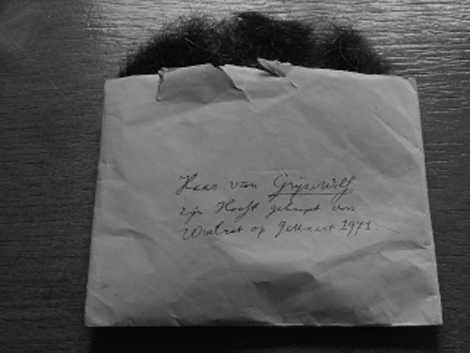 Haar van Grijsewolf
zijn Hooft geknipt door
op 9 Maart 1971.